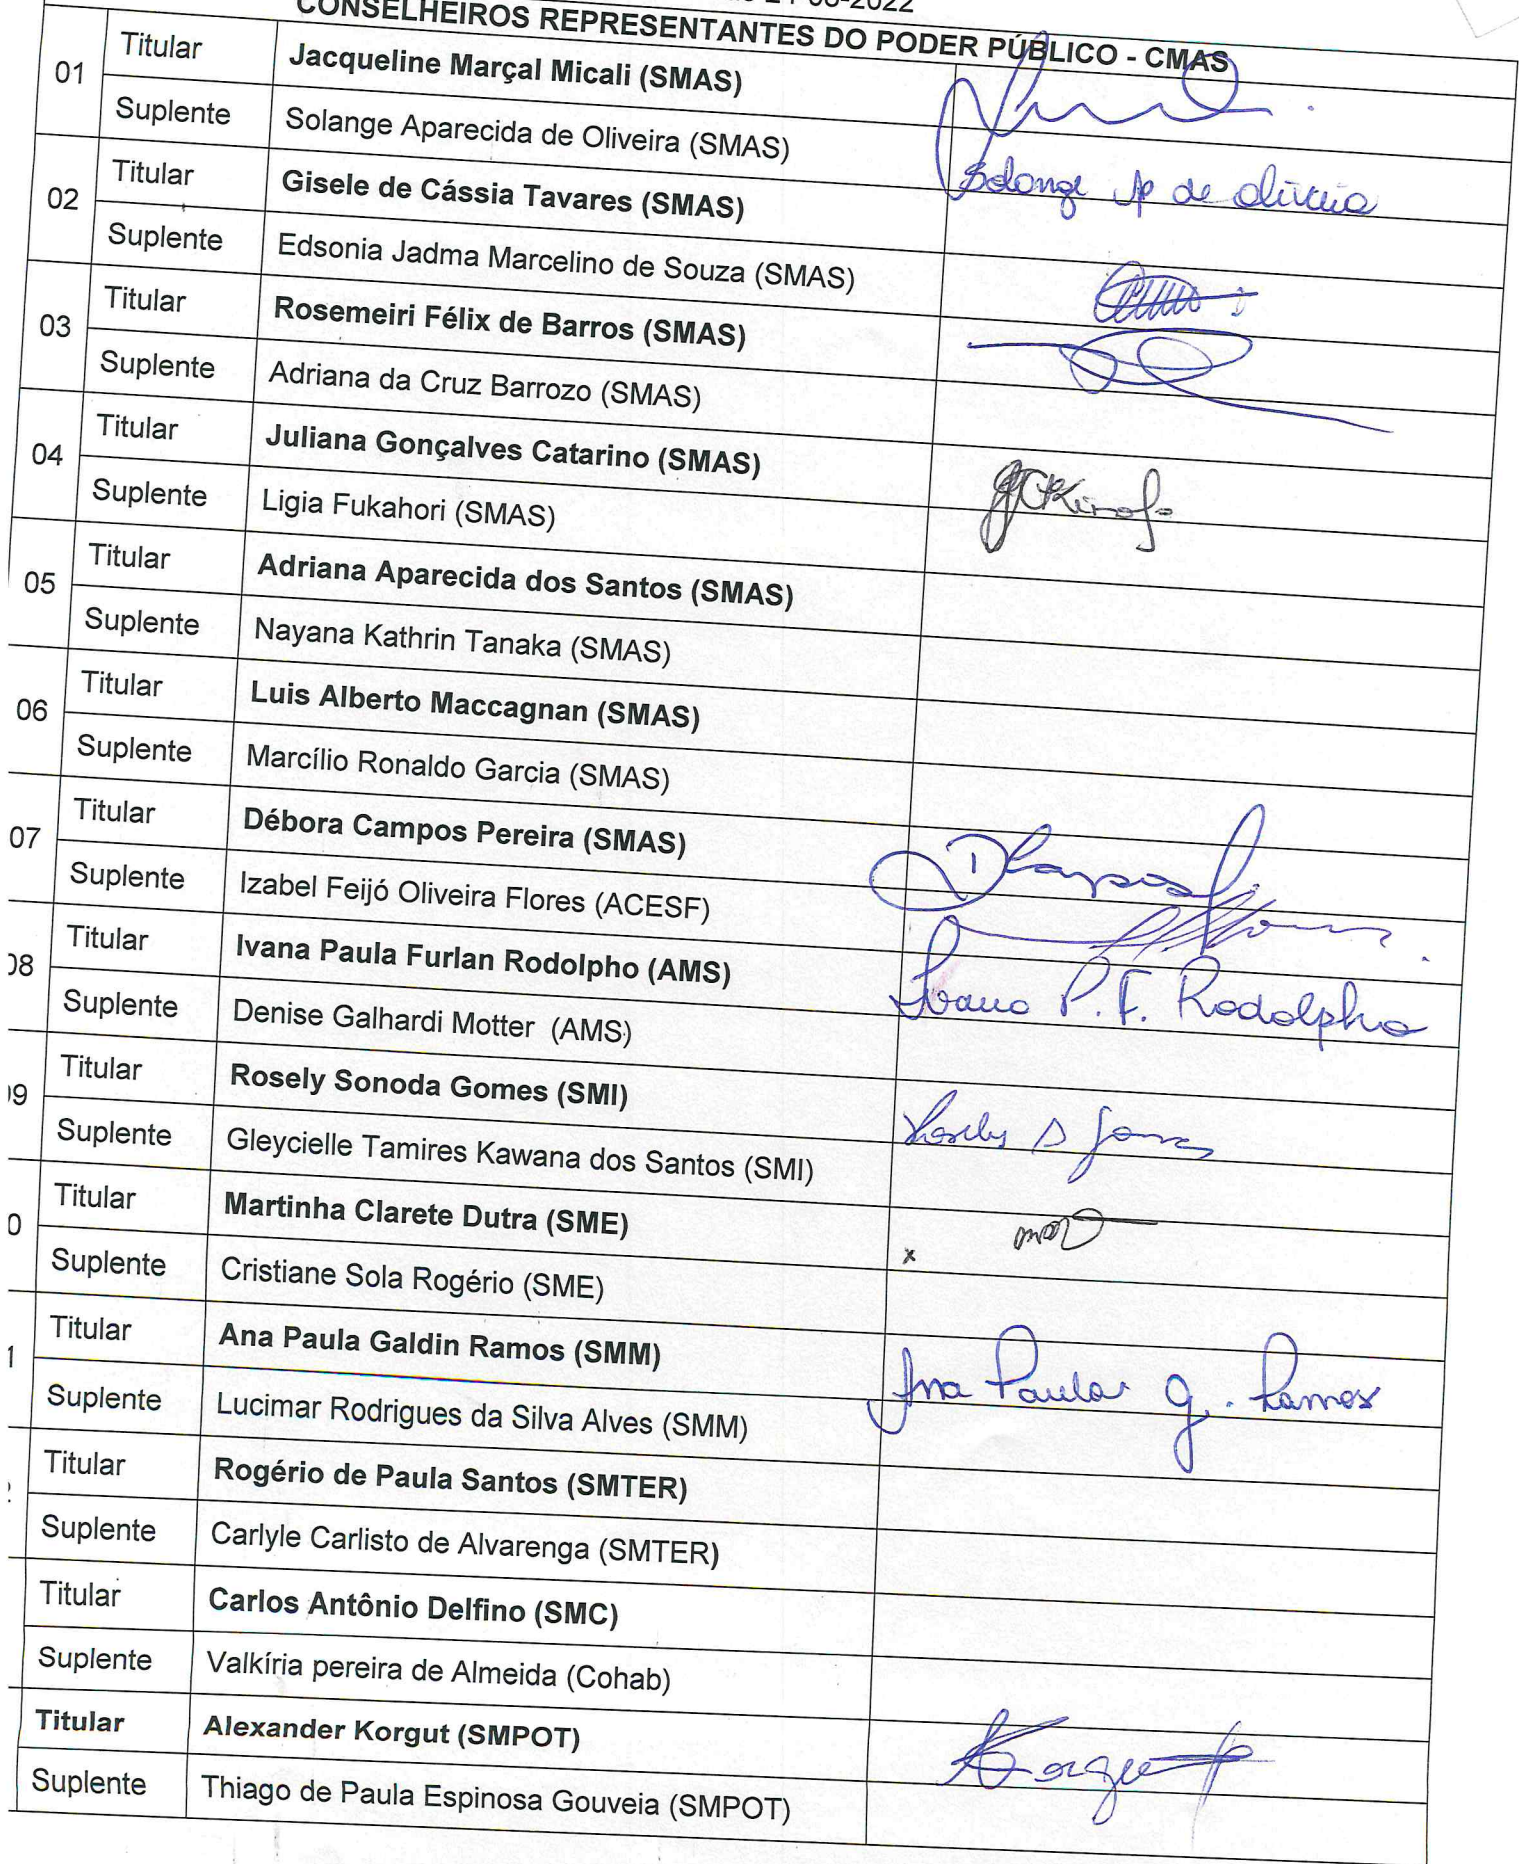 -2022
CONSELHEIROS REPRESENTANTES DO PODER PÚBLICO - CMAS
01 Titular Jacqueline Marçal Micali (SMAS)
Suplente Solange Aparecida de Oliveira (SMAS) Solange Ap de Oliveira
02 Titular Gisele de Cássia Tavares (SMAS)
Suplente Edsonia Jadma Marcelino de Souza (SMAS)
03 Titular Rosemeiri Félix de Barros (SMAS)
Suplente Adriana da Cruz Barrozo (SMAS)
04 Titular Juliana Gonçalves Catarino (SMAS)
Suplente Ligia Fukahori (SMAS)
05 Titular Adriana Aparecida dos Santos (SMAS)
Suplente Nayana Kathrin Tanaka (SMAS)
06 Titular Luis Alberto Maccagnan (SMAS)
Suplente Marcílio Ronaldo Garcia (SMAS)
07 Titular Débora Campos Pereira (SMAS)
Suplente Izabel Feijó Oliveira Flores (ACESF)
08 Titular Ivana Paula Furlan Rodolpho (AMS) Ivana P. F. Rodolpho
Suplente Denise Galhardi Motter (AMS)
09 Titular Rosely Sonoda Gomes (SMI) Rosely S Gomes
Suplente Gleycielle Tamires Kawana dos Santos (SMI)
0 Titular Martinha Clarete Dutra (SME) x
Suplente Cristiane Sola Rogério (SME)
1 Titular Ana Paula Galdin Ramos (SMM) Ana Paula G. Ramos
Suplente Lucimar Rodrigues da Silva Alves (SMM)
Titular Rogério de Paula Santos (SMTER)
Suplente Carlyle Carlisto de Alvarenga (SMTER)
Titular Carlos Antônio Delfino (SMC)
Suplente Valkíria pereira de Almeida (Cohab)
Titular Alexander Korgut (SMPOT) Korgut
Suplente Thiago de Paula Espinosa Gouveia (SMPOT)